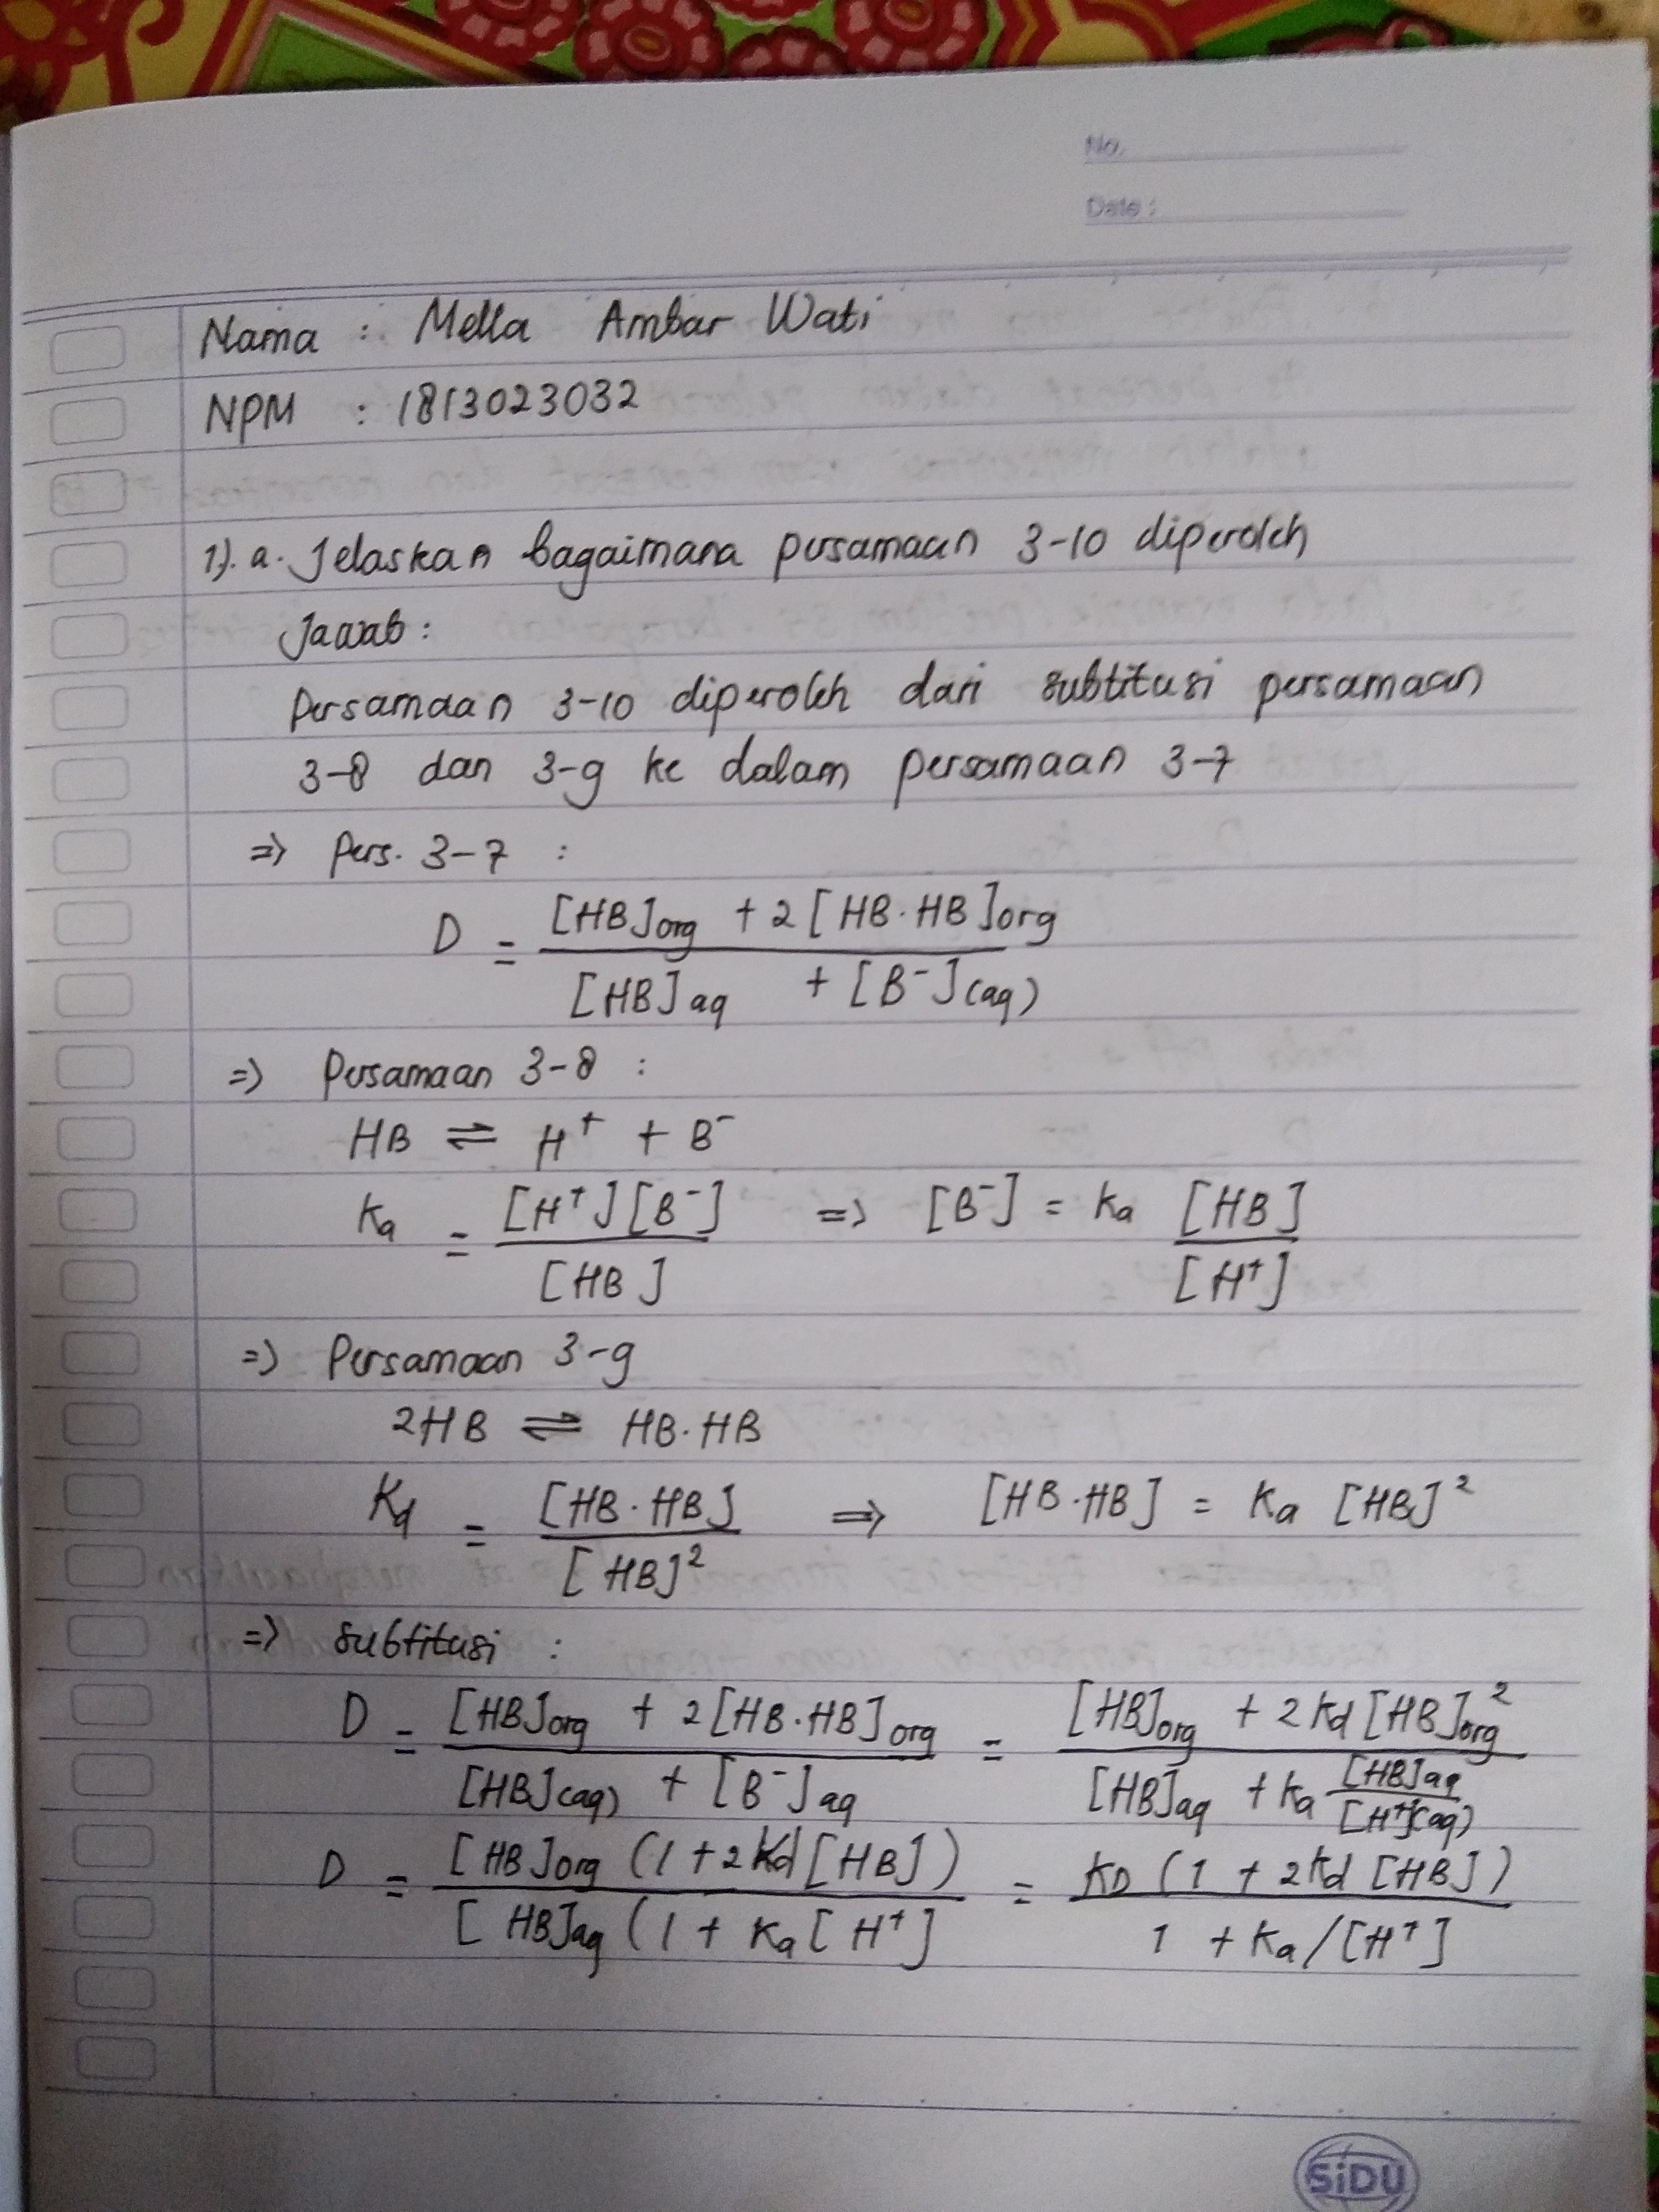 No.
Date :
Nama : Mella Ambar Wati
NPM : 1813023032
1). a. Jelaskan bagaimana persamaan 3-10 diperoleh
Jawab :
Persamaan 3-10 diperoleh dari subtitusi persamaan
3-8 dan 3-9 ke dalam persamaan 3-7
=> Pers. 3-7 :
D = [HB]org + 2 [HB·HB]org / [HB]aq + [B⁻](aq)
=> Persamaan 3-8 :
HB ⇌ H⁺ + B⁻
Ka = [H⁺][B⁻] / [HB] => [B⁻] = Ka [HB] / [H⁺]
=> Persamaan 3-9
2HB ⇌ HB·HB
Kd = [HB·HB] / [HB]² => [HB·HB] = Ka [HB]²
=> subtitusi :
D = [HB]org + 2[HB·HB]org / [HB](aq) + [B⁻]aq = [HB]org + 2Kd [HB]²org / [HB]aq + Ka [HB]aq / [H⁺](aq)
D = [HB]org (1 + 2Kd [HB]) / [HB]aq (1 + Ka [H⁺] = KD (1 + 2Kd [HB]) / 1 + Ka/[H⁺]
SiDU